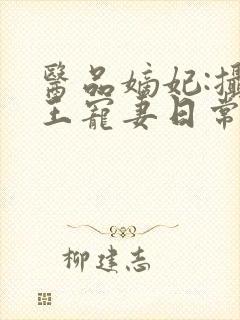 醫品嫡妃:攝
王寵妻日常
柳建志